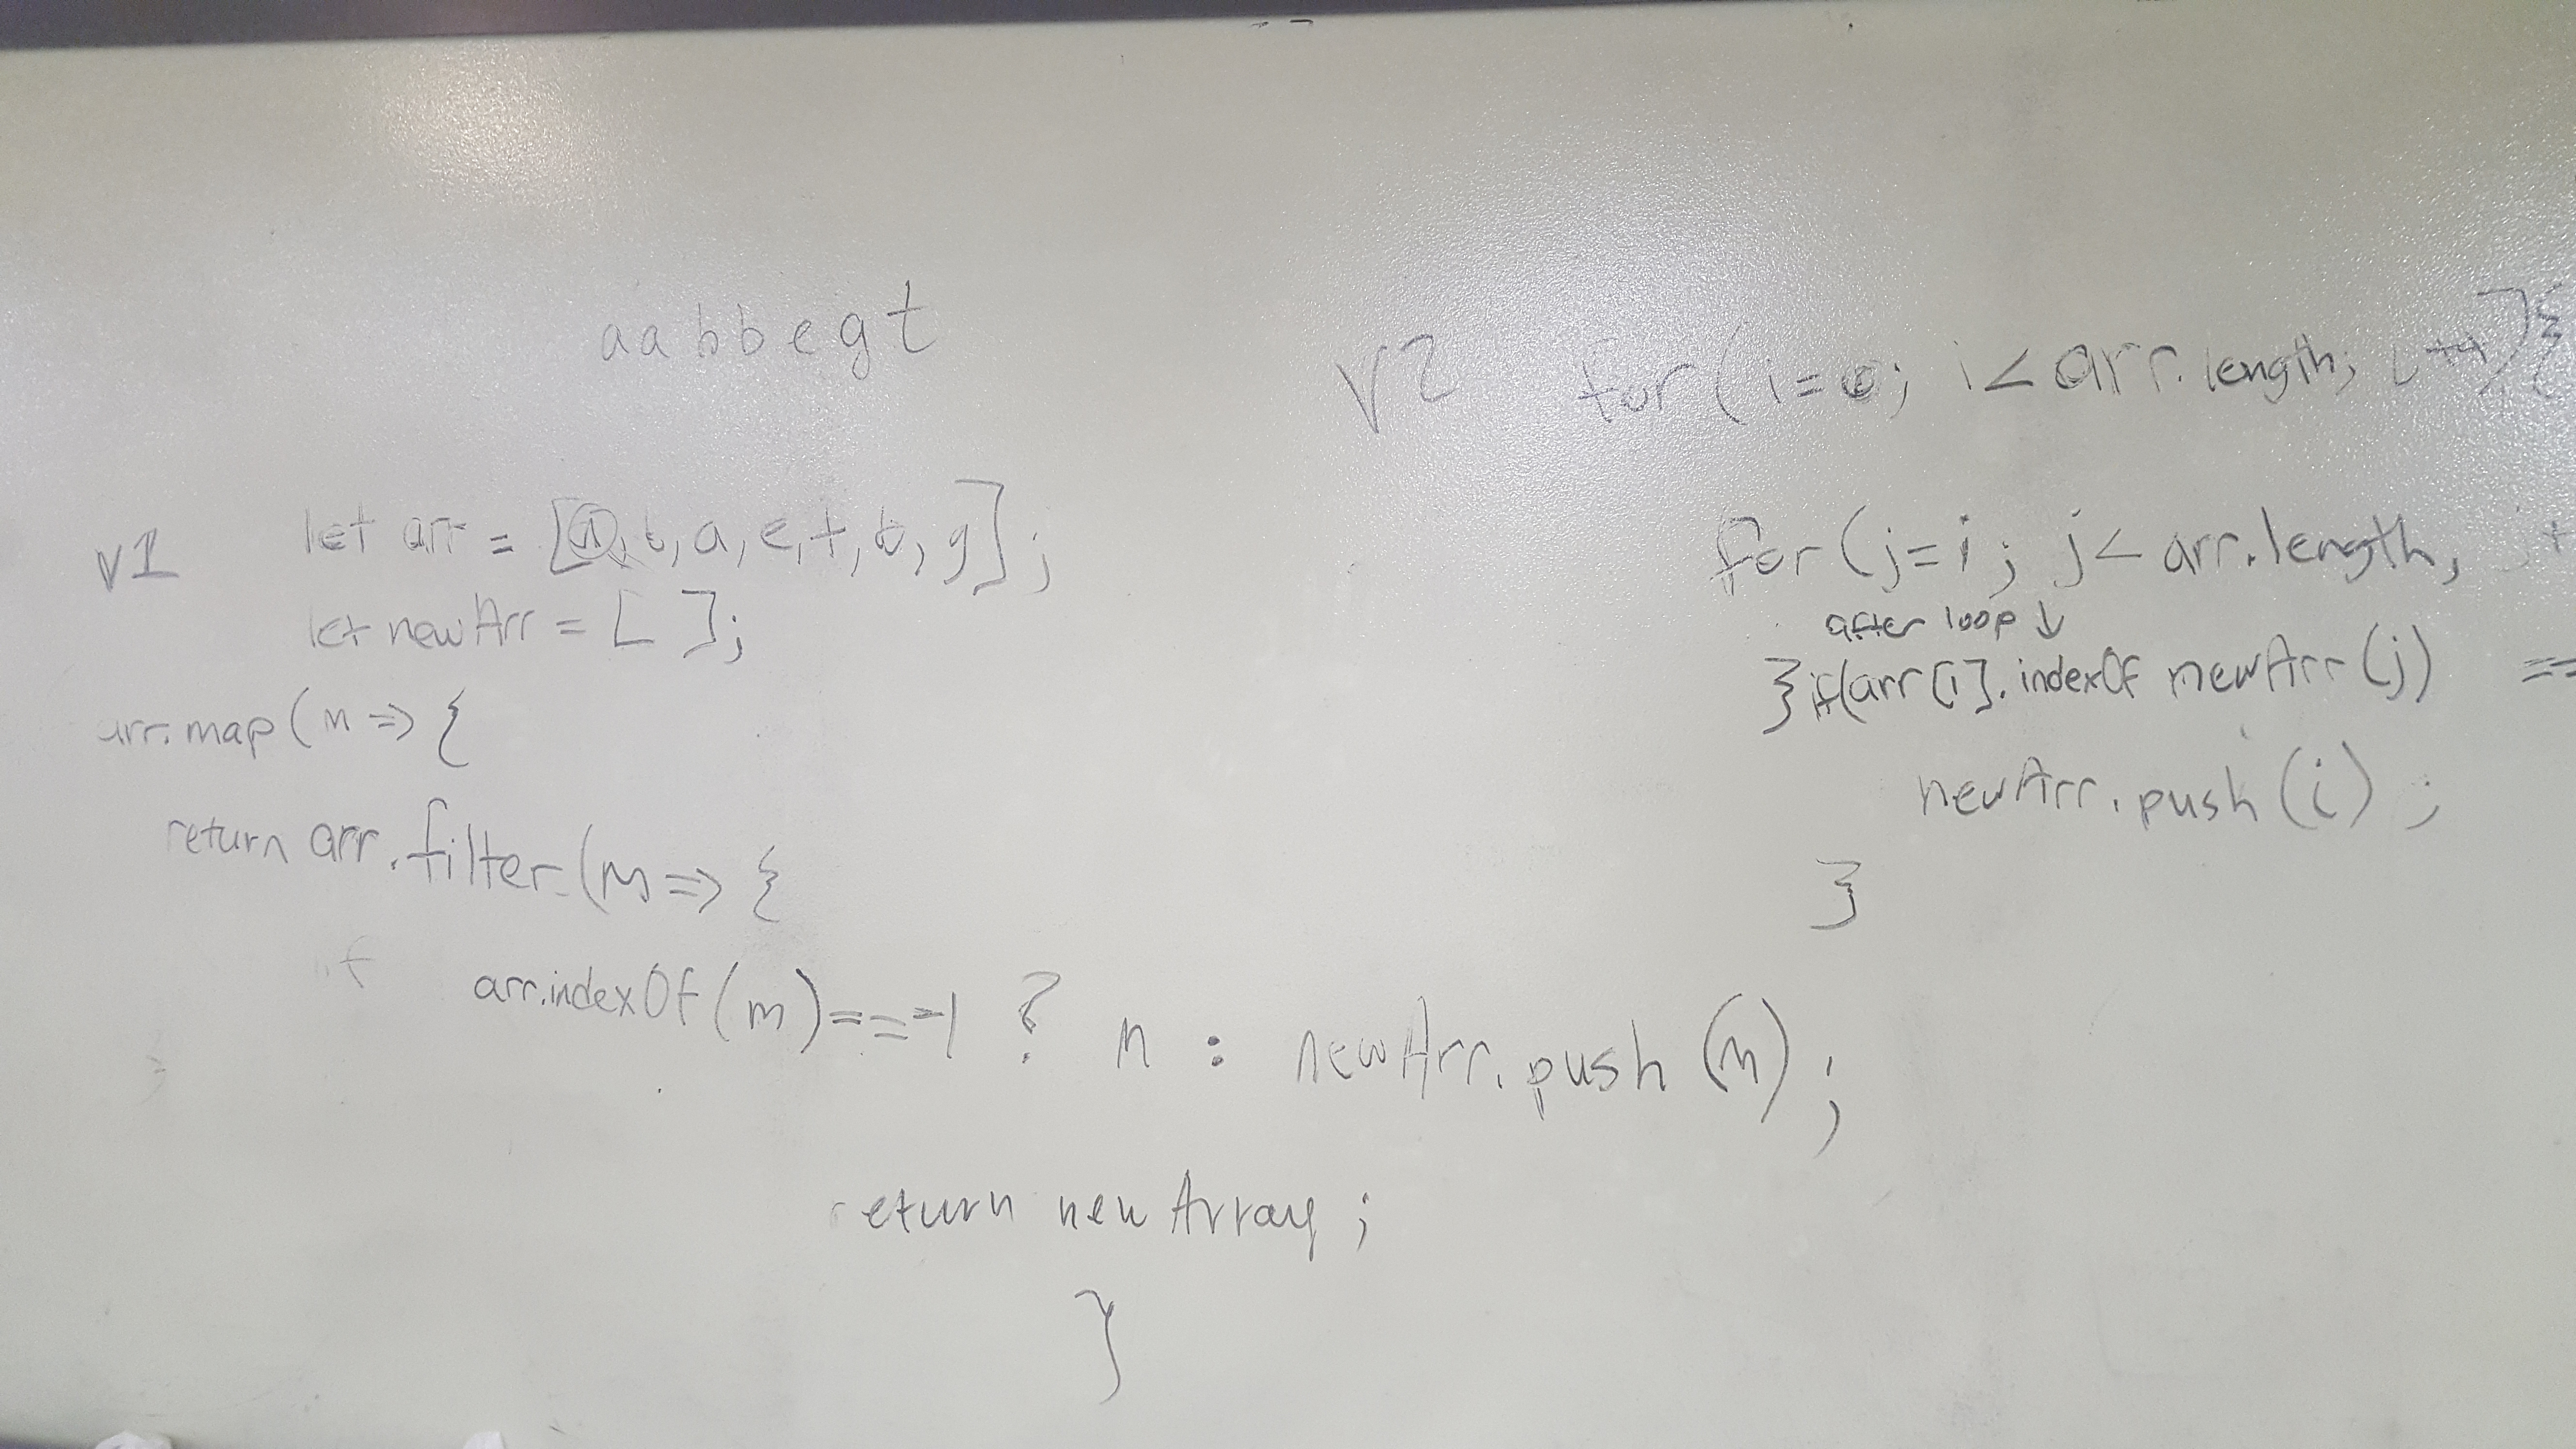 aabbegt
v1
let arr = [a, b, a, e, t, b, g];
let newArr = [ ];
arr.map(n => {
return arr.filter(m => {
if arr.indexOf(m) === -1 ? n : newArr.push(n);
return newArray;
}
V2 for(i=0; i<arr.length; i++){
for(j=i; j<arr.length;
after loop ↓
}if(arr[i].indexOf newArr(j) ==
newArr.push(i);
}